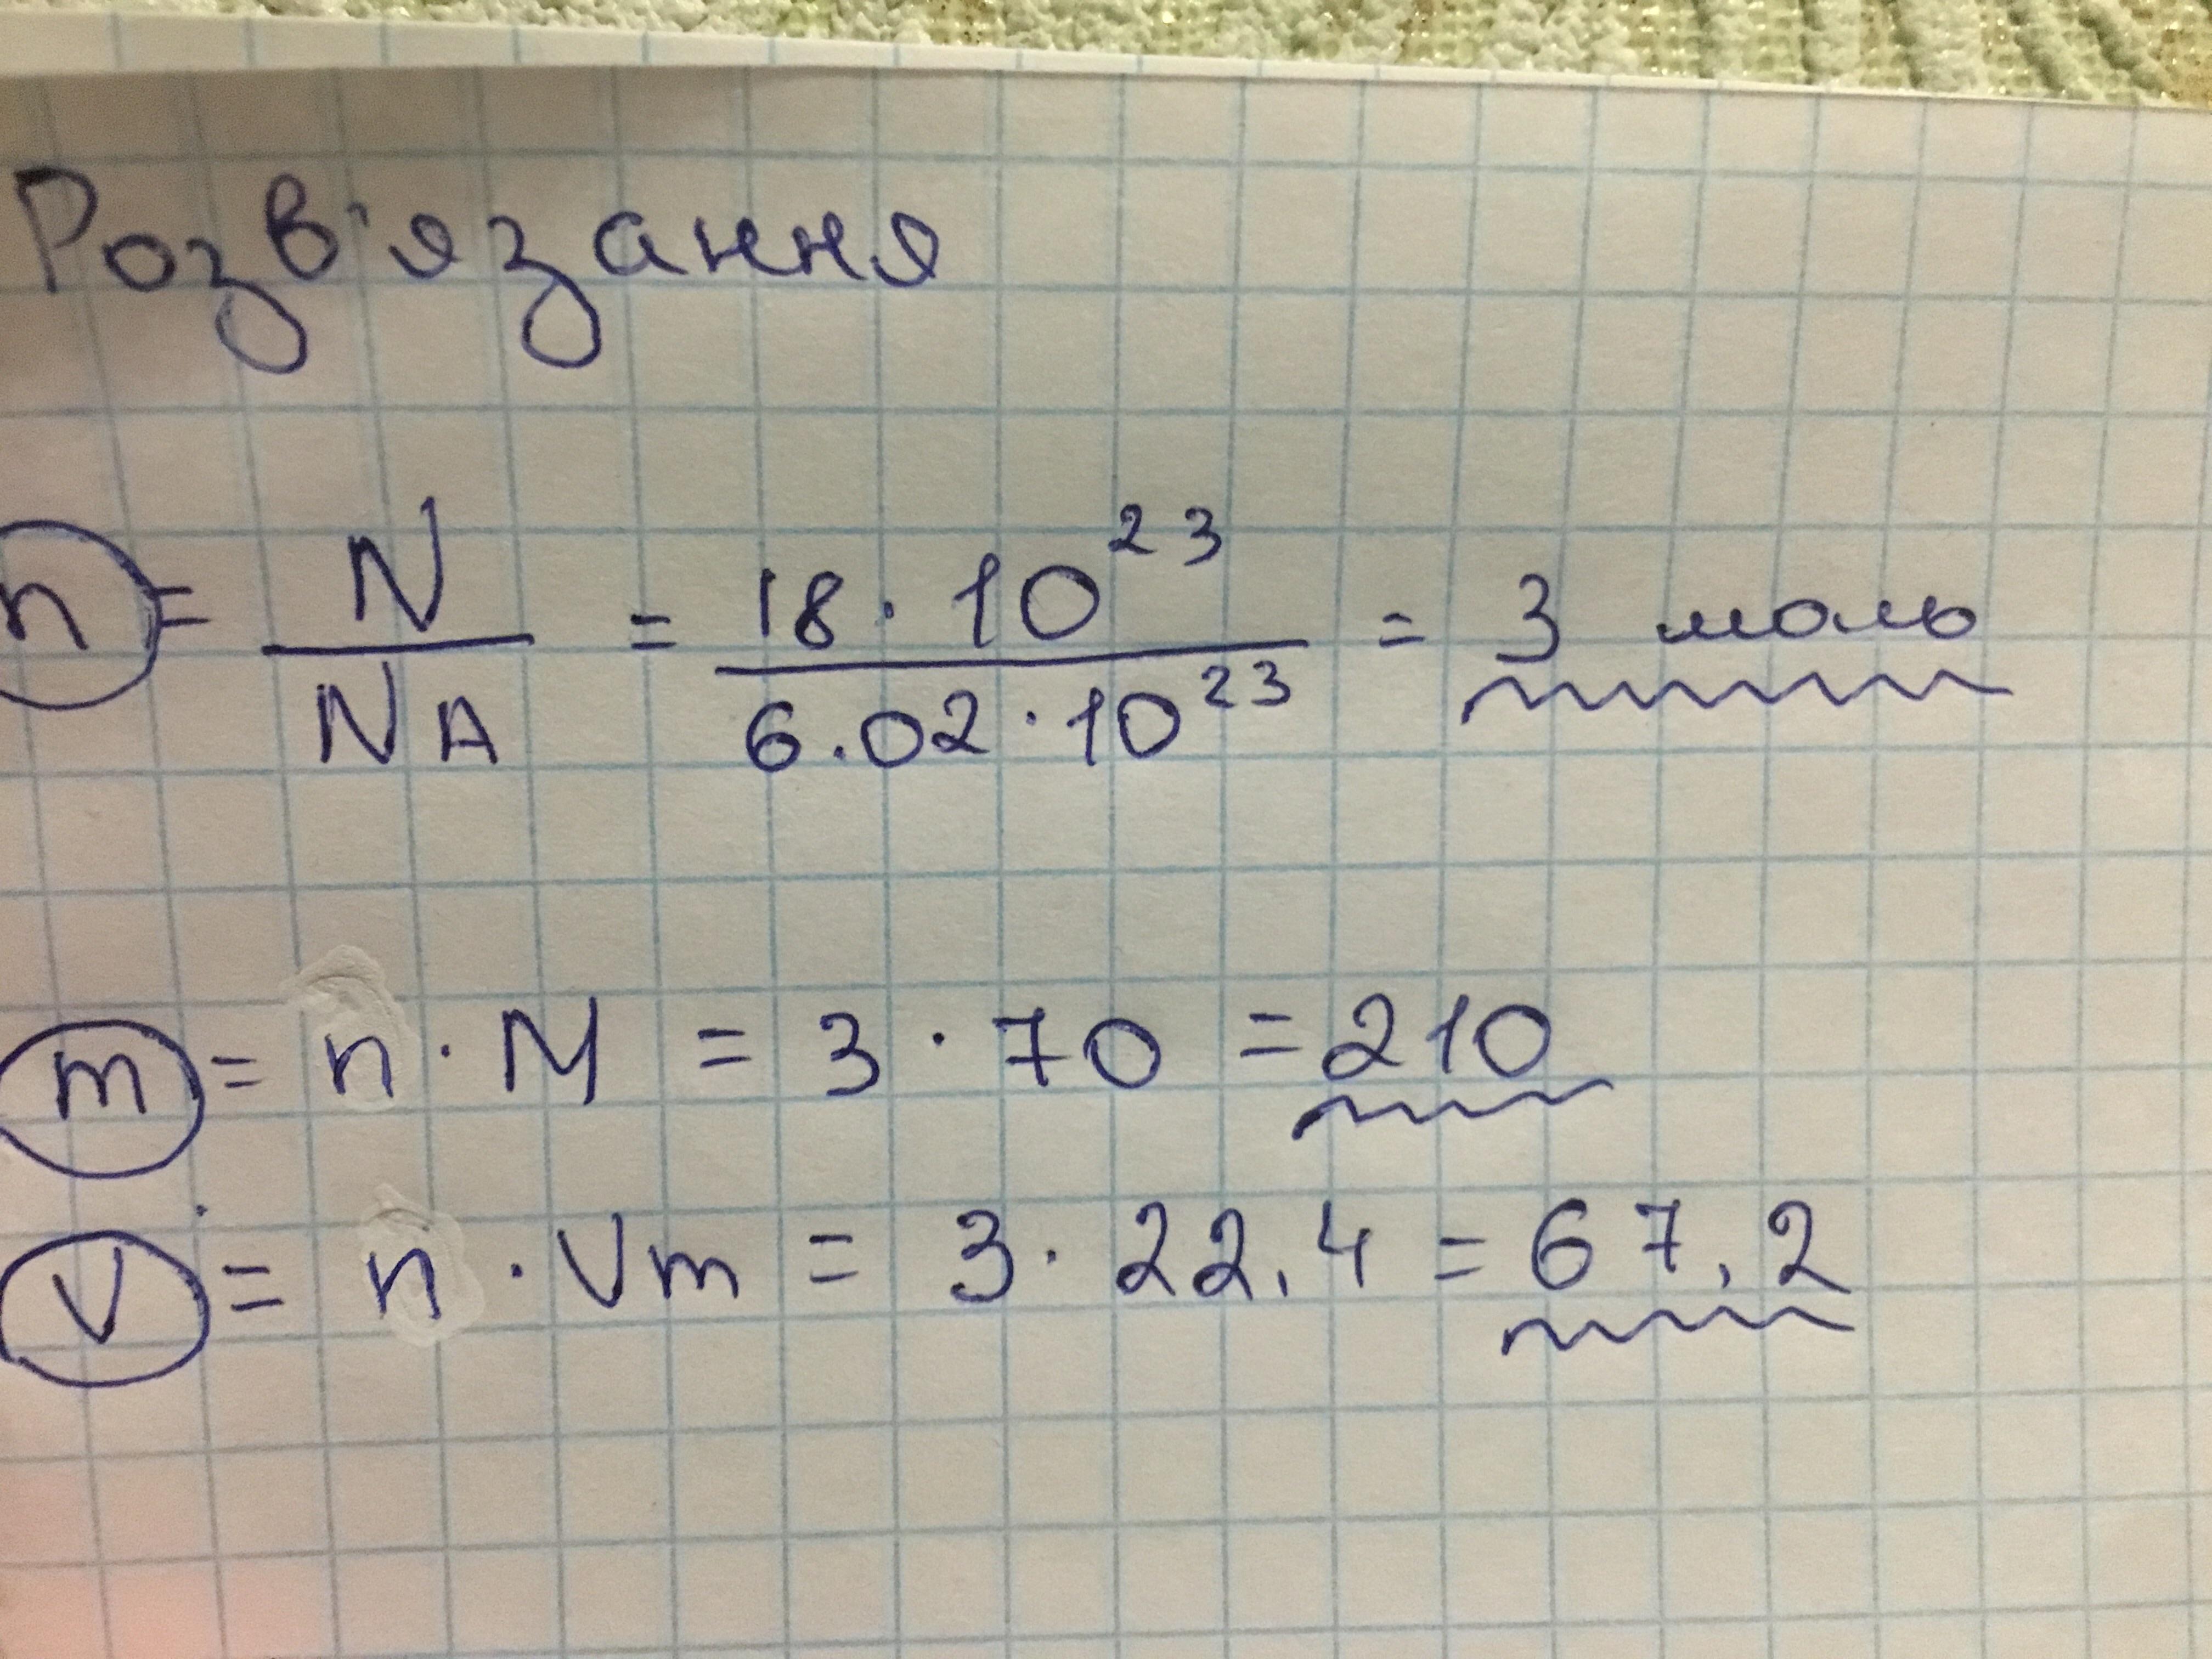 Розв'язання
n = N / NA = 18 · 10²³ / 6.02 · 10²³ = 3 моль
m = n · M = 3 · 70 = 210
V = n · Vm = 3 · 22,4 = 67,2